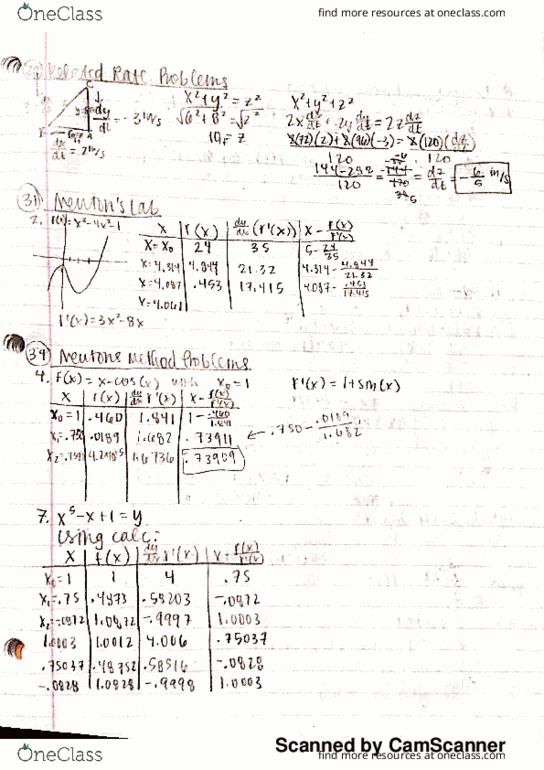 OneClass
find more resources at oneclass.com
Related Rate Problems
x²+y²=z²
x²+y²+z²
-3in/s
√6²+8²=√z²
2x dx/dt + 2y dy/dt = 2z dz/dt
10 = z
dx/dt = 2in/s
120 120
144-288/120 = = dz/dt = -6/5 in/s
31) Newton's Lab
2. f(x)=x³-4x²-1
x f(x) dy/dx (f'(x)) x - f(x)/f'(x)
x=x₀ 24 35 5-24/35
x=4.314 4.844 21.32 4.314-4.844/21.32
x=4.087 .453 17.415 4.087-.453/17.415
x=4.061
f'(x)=3x²-8x
34) Newtons Method Problems
4. f(x)=x-cos(x) with x₀=1 f'(x)=1+sin(x)
x f(x) dy/dx f'(x) x - f(x)/f'(x)
x₀=1 .460 1.841 1-.460/1.841
x₁=.750 .0189 1.682 .73911 ← .750-.0189/1.682
1.6736 .73909
7. x⁵-x+1=y
Using calc:
x f(x) dy/dx f'(x) x+ f(x)/f'(x)
x₀=1 1 4 .75
x₁=.75 .4873 .58203 -.0872
x₂=-.0872 1.0872 -.9997 1.0003
1.0003 1.0012 4.006 .75037
.75037 .48752 .58516 -.0828
-.0828 1.0828 -.9998 1.0003
Scanned by CamScanner
OneClass
find more resources at oneclass.com